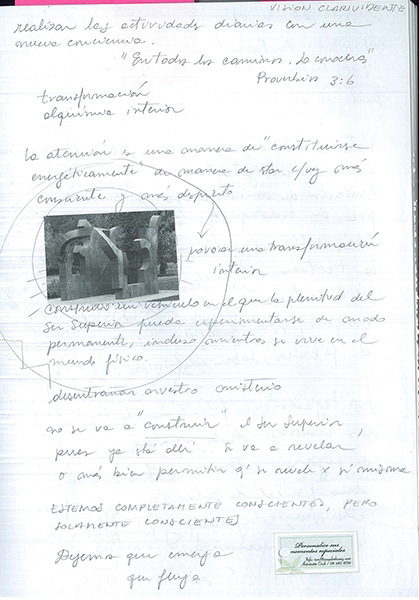 VISION CLARIVIDENTE
realizar las actividades diarias con una
nueva conciencia.
"En todos los caminos. Lo conocerás"
Proverbios 3:6
transformación
alquimia interior
La atención es una manera de "constituirse
energéticamente" de manera de star c/vez más
consciente y más despierto
provocar una transformación
interior
construir un vehículo en el que la plenitud del
Ser Superior pueda experimentarse de modo
permanente, incluso mientras se vive en el
mundo físico.
desentrañar nuestro misterio
no se va a "construir" el Ser Superior,
pues ya stá allí Se va a revelar
o más bien permitir q' se revele x sí mismo
ESTEMOS COMPLETAMENTE CONSCIENTES, PERO
SOLAMENTE CONSCIENTES
Dejemos que emerja
que fluya
Personalice sus
momentos especiales